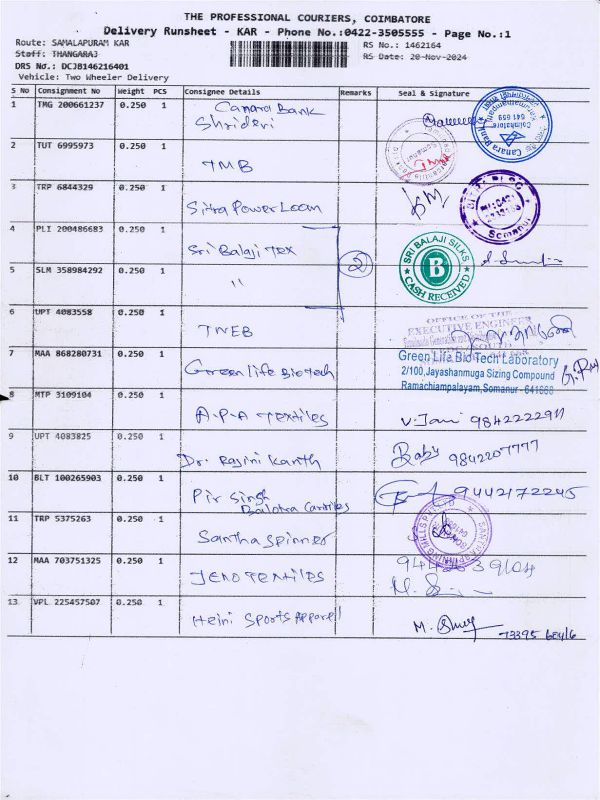 THE PROFESSIONAL COURIERS, COIMBATORE
Delivery Runsheet - KAR - Phone No.:0422-3505555 - Page No.:1
Route: SAMALAPURAM KAR
RS No.: 1462164
Staff: THANGARAJ
RS Date: 20-Nov-2024
DRS No.: DCJB146216401
Vehicle: Two Wheeler Delivery
S No Consignment No Weight PCS Consignee Details Remarks Seal & Signature
1 TMG 200661237 0.250 1 Canara Bank
Shridevi
Canara Bank
Coimbatore
2 TUT 6995973 0.250 1 TMB
3 TRP 6844329 0.250 1 Sitra Power Loom
Somanur
4 PLI 200486683 0.250 1 Sri Balaji Tex
2
SRI BALAJI SILKS
B
CASH RECEIVED
5 SLM 358984292 0.250 1 "
6 UPT 4083558 0.250 1 TNEB
OFFICE OF THE
EXECUTIVE ENGINEER
7 MAA 868280731 0.250 1 Green life Biotech
Green Life Bio Tech Laboratory
2/100, Jayashanmuga Sizing Compound
Ramachiampalayam, Somanur - 641668
8 MTP 3109104 0.250 1 A.P.A Textiles
9 UPT 4083825 0.250 1 Dr. Rajini Kanth
Baby 9842207777
10 BLT 100265903 0.250 1 Pir Singh
9442172245
11 TRP 5375263 0.250 1 Santha Spinner
12 MAA 703751325 0.250 1 JENO TEXTILES
13 VPL 225457507 0.250 1 Heini Sports Apparell